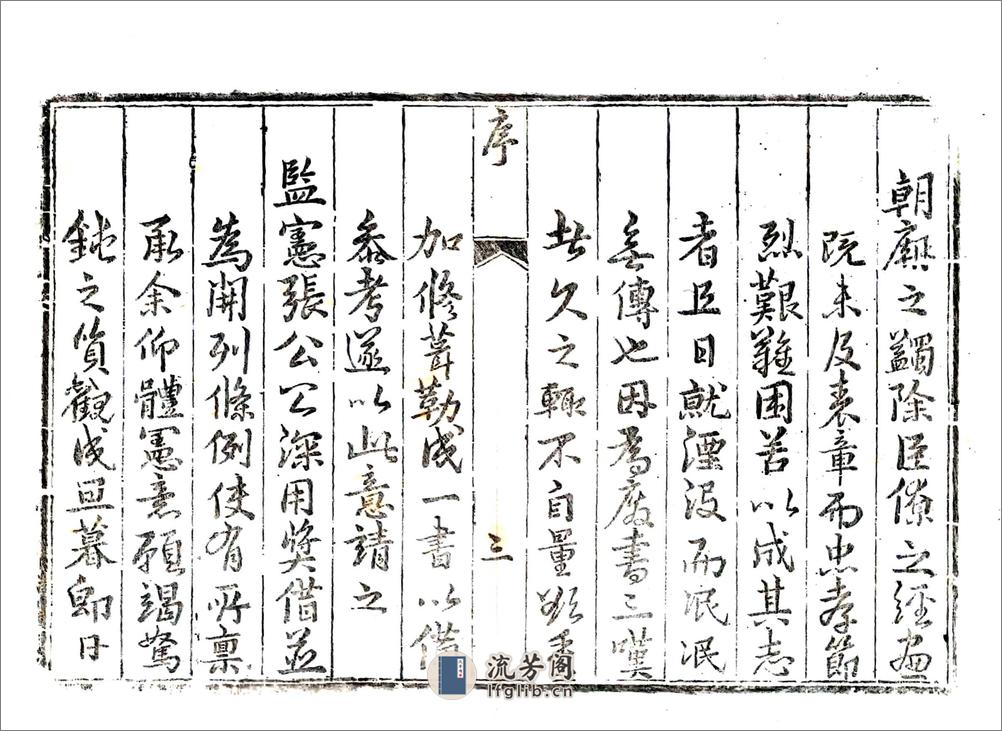 朝廟之蠲除臣僚之經畫
既未及表章而忠孝節
烈艱難困苦以成其志
者且日就湮沒而泯泯
無傳也因為廢書三嘆
者久之輙不自量欲重
序
三
加修葺勒成一書以備
叅考遂以此意請之
監憲張公公深用獎借並
為開列條例使有所稟
承余仰體憲意願竭駑
鈍之質觀成旦暮即日
流芳阁
lfglib.cn